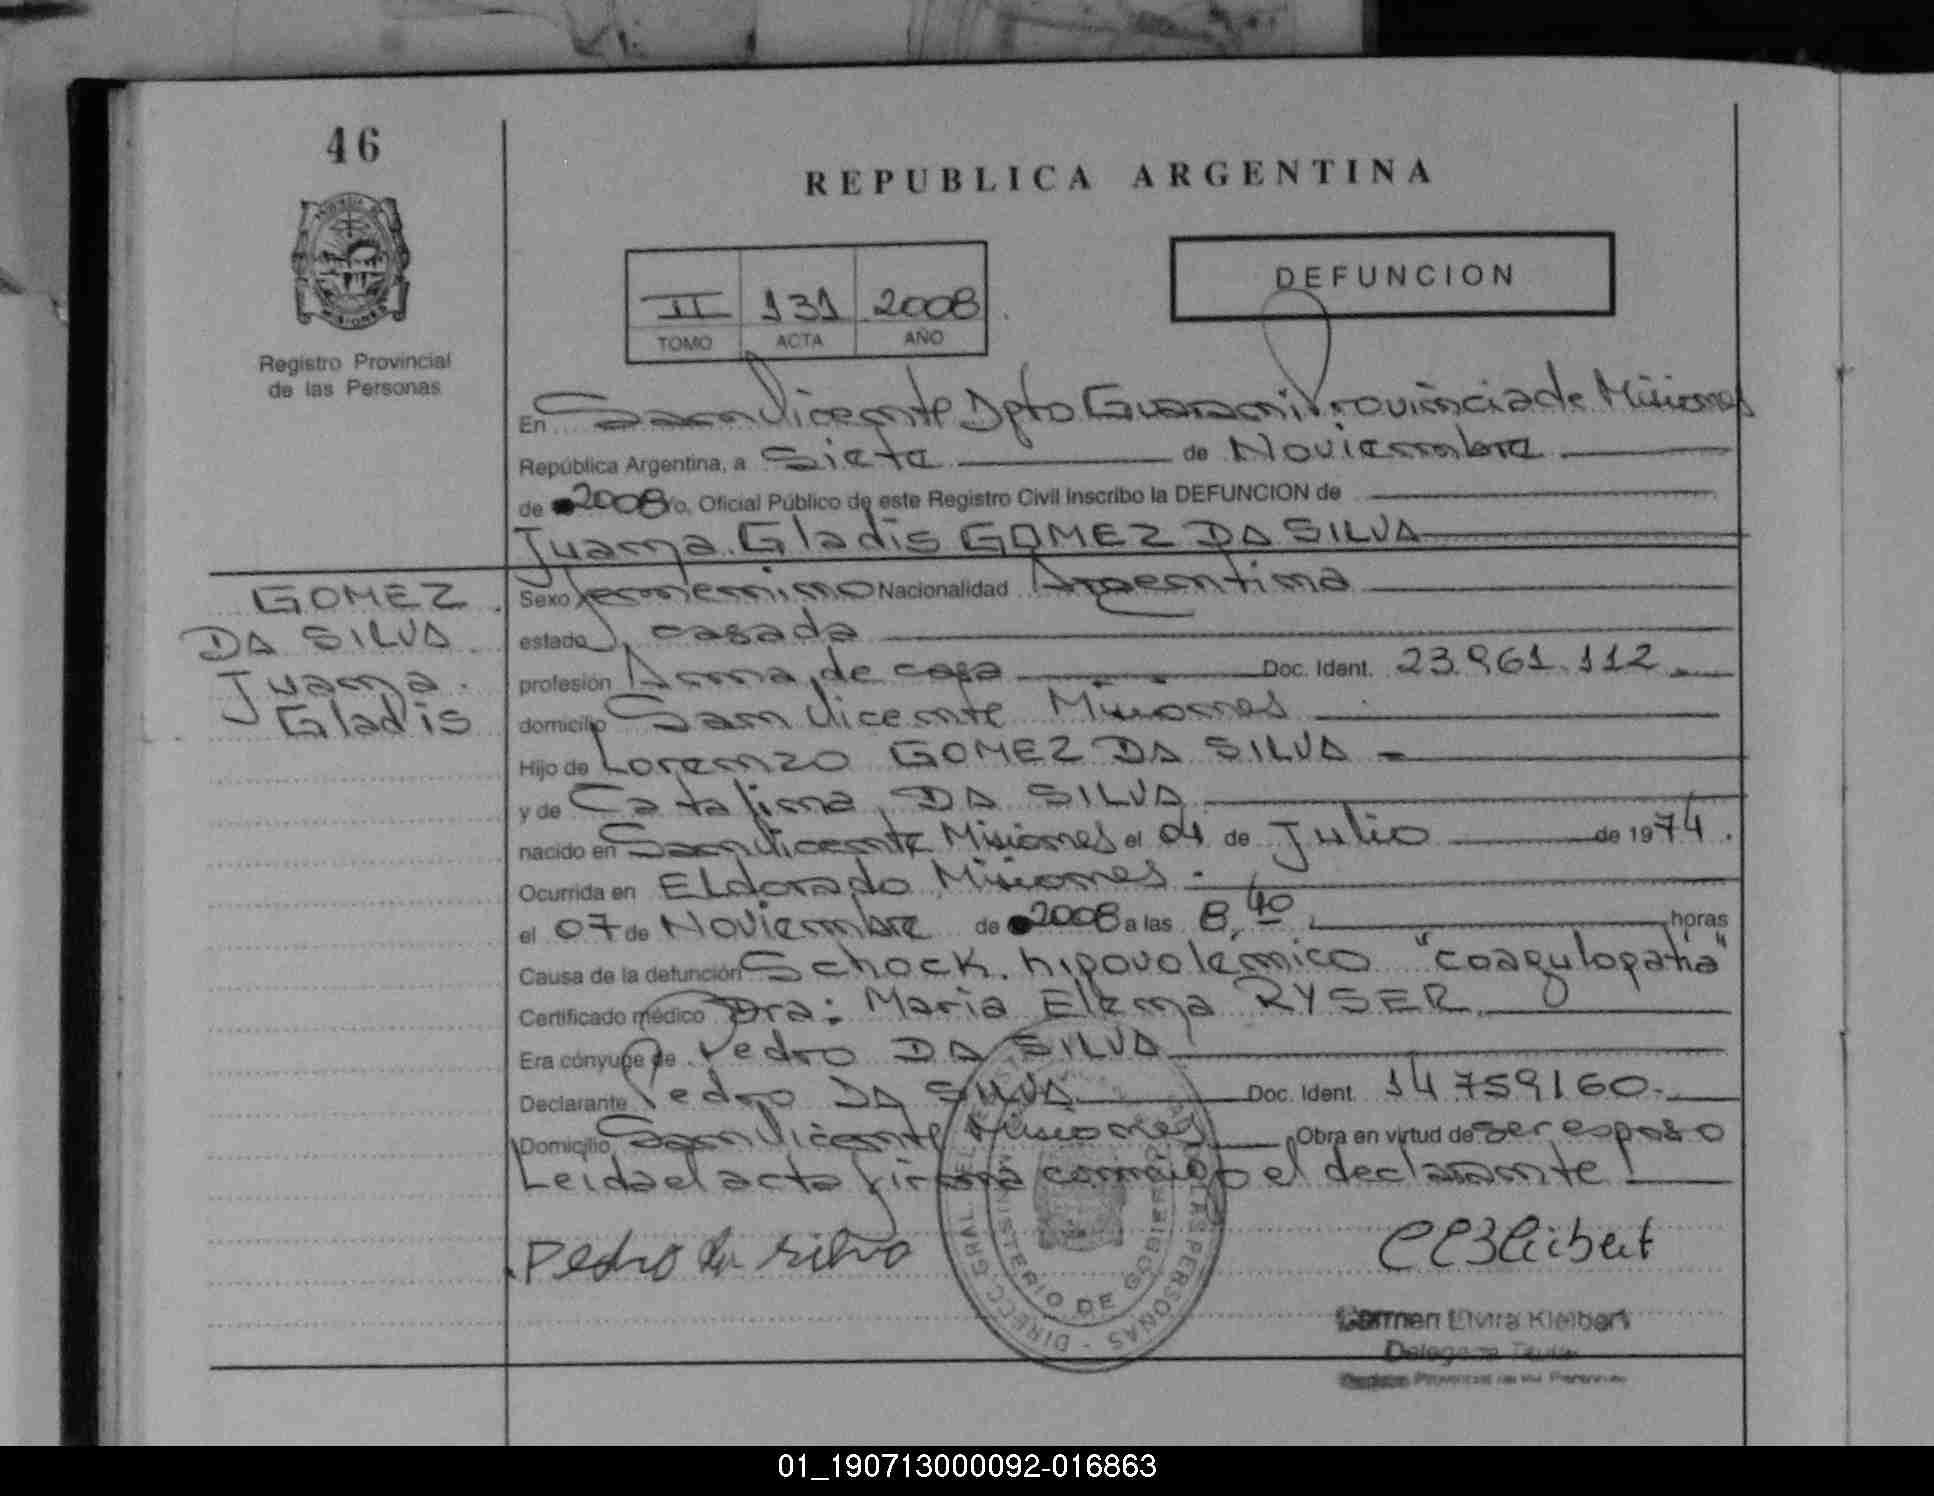 46
REPUBLICA ARGENTINA
Registro Provincial
de las Personas
II 131 2008
TOMO ACTA AÑO
DEFUNCION
En San Vicente Dpto Guarani Provincia de Misiones
República Argentina, a Siete de Noviembre
de 2008 Yo, Oficial Público de este Registro Civil inscribo la DEFUNCION de
Juana Gladis GOMEZ DA SILVA
GOMEZ
DA SILVA
Juana
Gladis
Sexo femenino Nacionalidad Argentina
estado casada
profesión Ama de casa Doc. Ident. 23.961.112
domicilio San Vicente Misiones
Hijo de Lorenzo GOMEZ DA SILVA
y de Catalina DA SILVA
nacido en San Vicente Misiones el 04 de Julio de 1974.
Ocurrida en Eldorado Misiones.
el 07 de Noviembre de 2008 a las 8,40 horas
Causa de la defunción Schock hipovolemico "coagulopatia"
Certificado médico Dra: Maria Elena RYSER
Era cónyuge de Pedro DA SILVA
Declarante Pedro DA SILVA Doc. Ident. 14.759160.
Domicilio San Vicente Misiones Obra en virtud de ser esposo
Leida el acta firma conmigo el declarante
Pedro da silva
Carmen Elvira Kleibert
Registro Provincial de las Personas
DIRECC GRAL DEL REGISTRO PERSONAS
MINISTERIO DE GOBIERNO
MISIONES
01_190713000092-016863